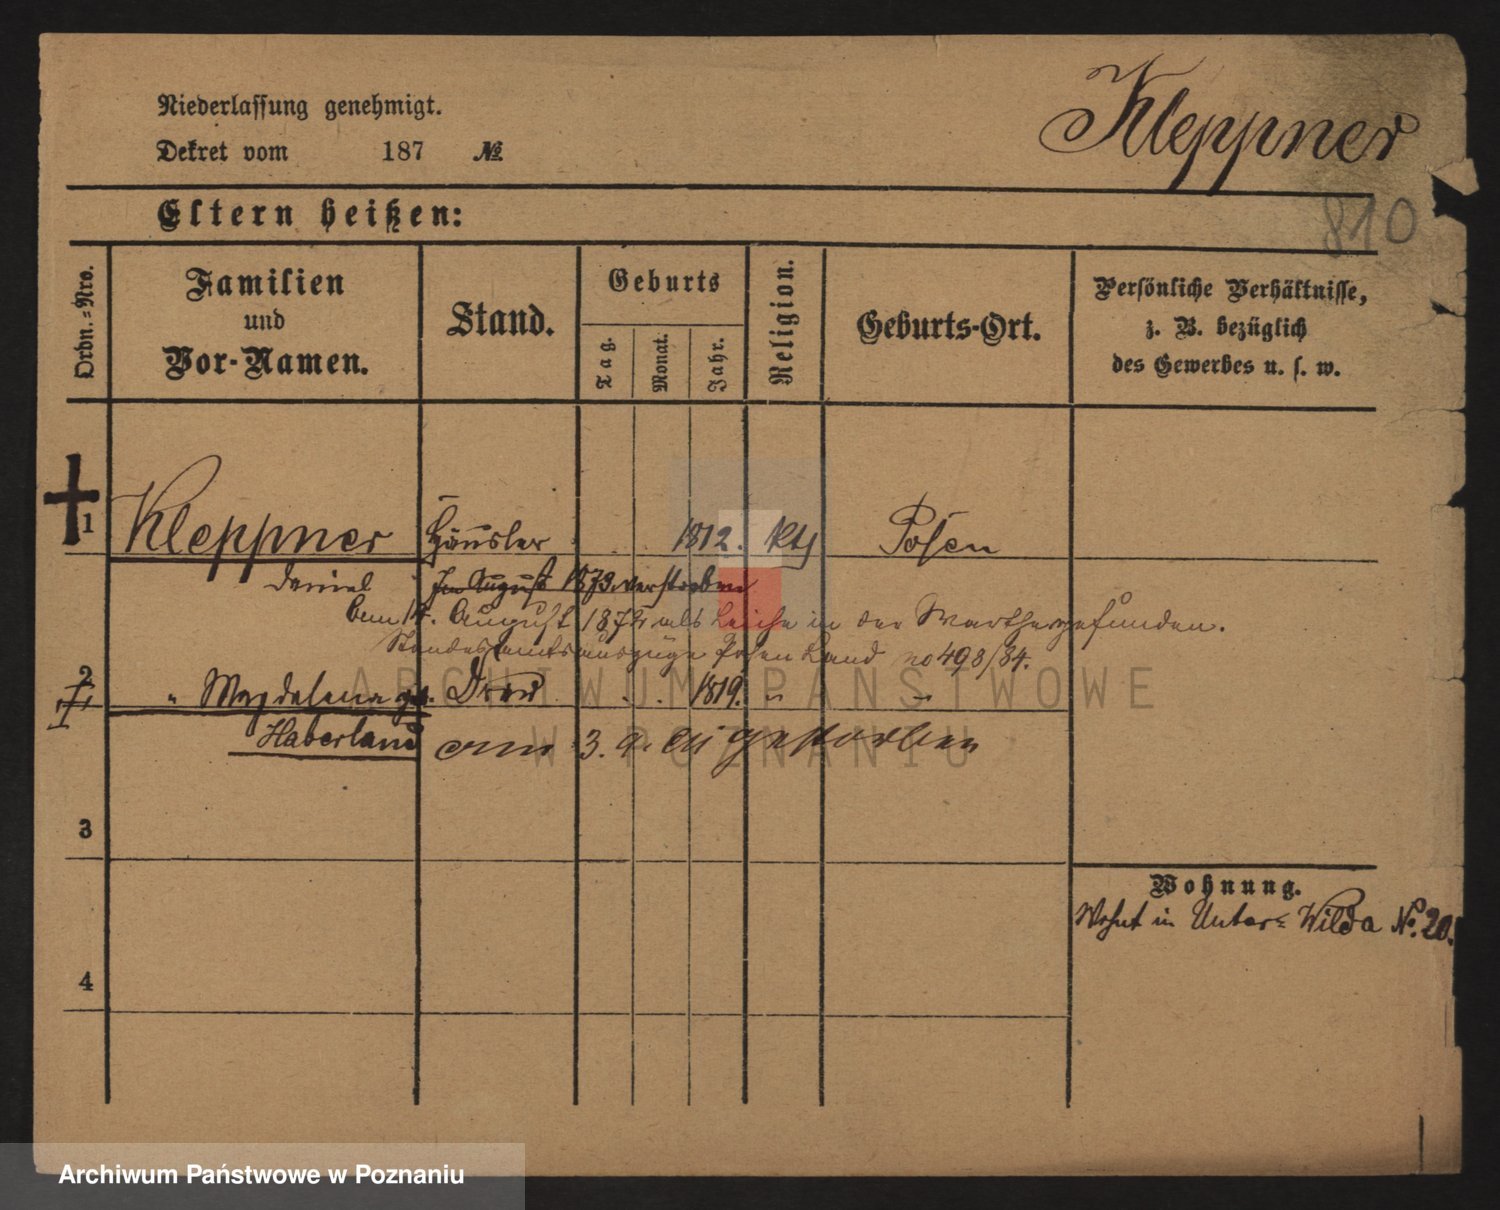 Niederlassung genehmigt.
Kleppner
Dekret vom 187 №
Eltern heißen:
810
Ordn.-Nro.
Familien und Vor-Namen.
Stand.
Geburts
Tag.
Monat.
Jahr.
Religion.
Geburts-Ort.
Persönliche Verhältnisse,
z. B. bezüglich
des Gewerbes u. s. w.
1 Kleppner Häusler 1812. kth Posen
Daniel Im August 1873 verstorben
Am 14. August 1872 als Leiche in der Warthe gefunden.
Standesamtsauszüge Posen Land no 498/84.
2 " Magdalena geb. Frau 1819. " "
Haberland am 3. 9. gestorben
3
Wohnung.
Wohnt in Unter-Wilda No. 20.
4
ARCHIWUM PAŃSTWOWE
W POZNANIU
Archiwum Państwowe w Poznaniu